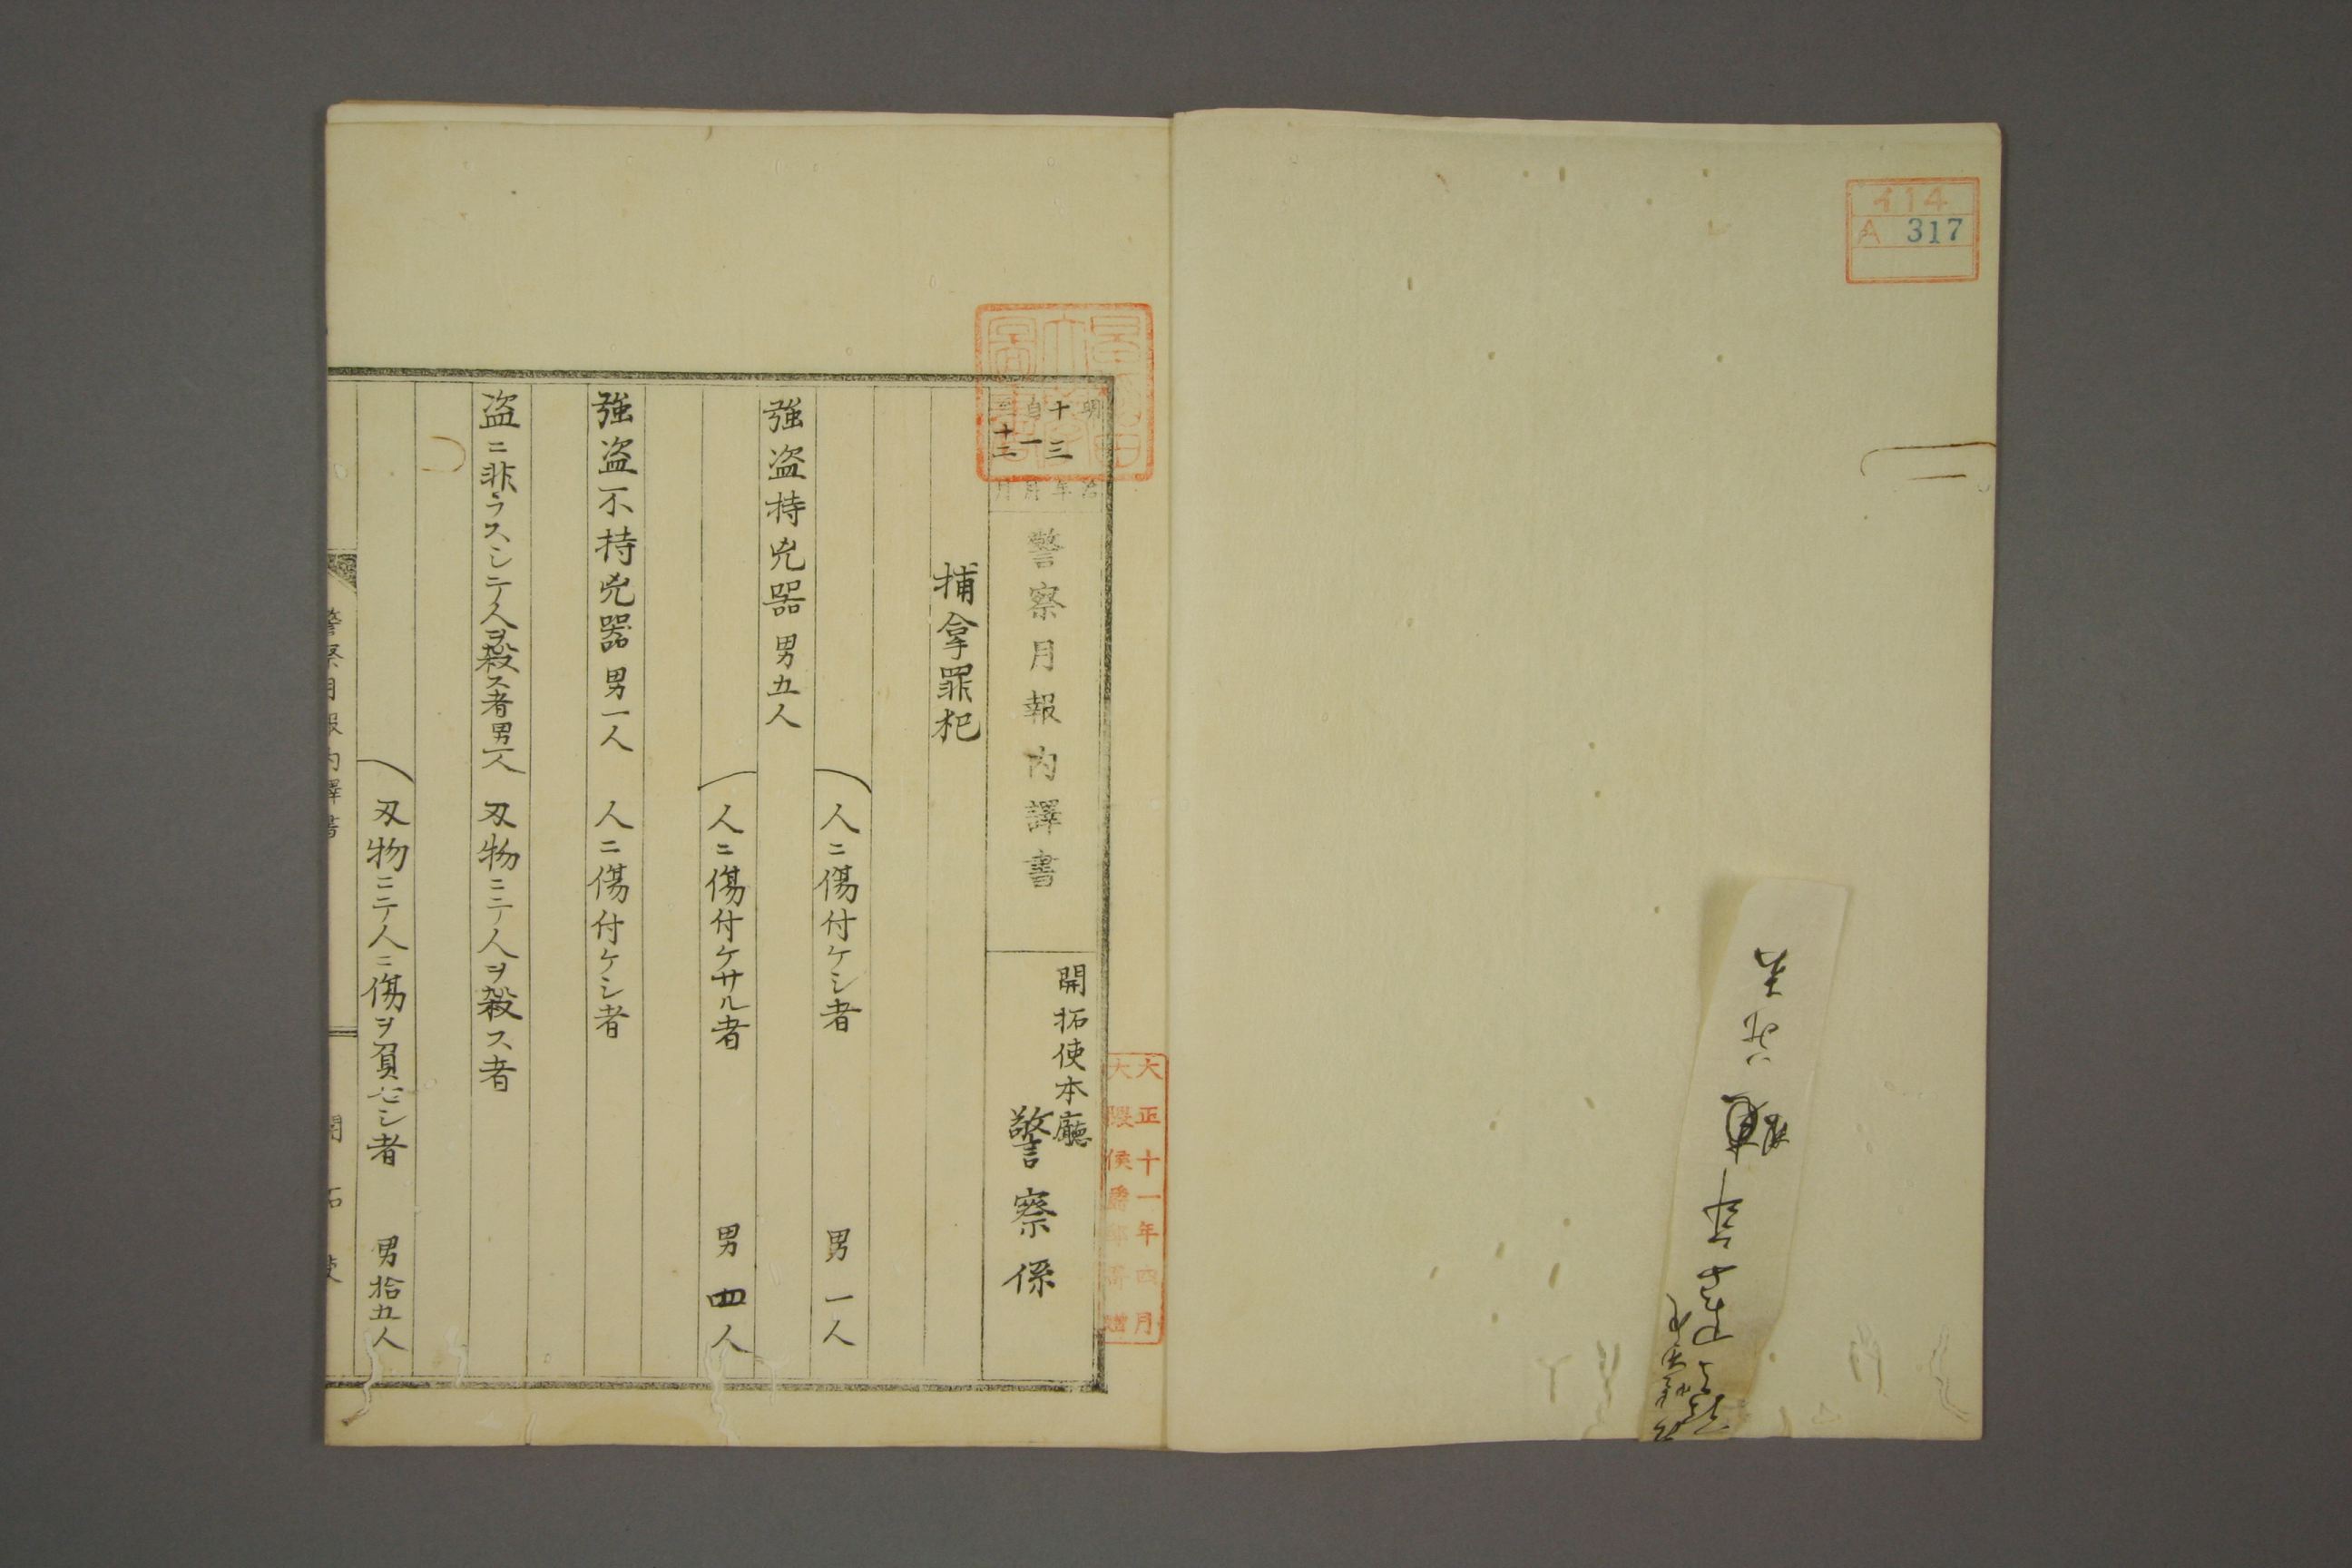 イ14
A 317
明治
十三年
自一月
至十二月
警察月報内譯書
開拓使本廳
警察係
大正十一年四月
大隈侯爵家寄贈
捕拿罪犯
人ニ傷付ケシ者 男一人
強盗持兇器男五人
人ニ傷付ケサル者 男四人
強盗不持兇器男一人 人ニ傷付ケシ者
盗ニ非ラスシテ人ヲ殺ス者男一人 刃物ニテ人ヲ殺ス者
刃物ニテ人ニ傷ヲ負セシ者 男拾五人
警察月報内譯書
開拓使